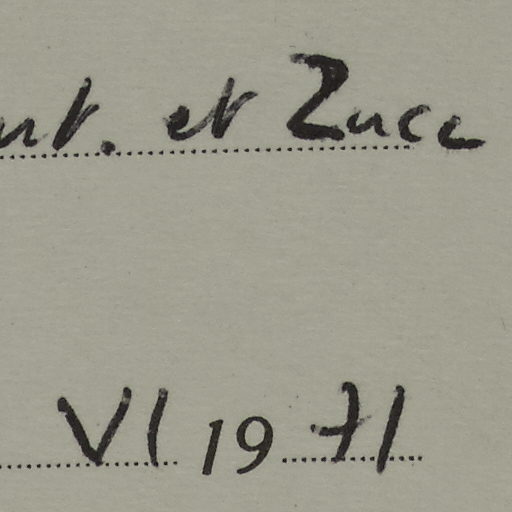 et Zucc
VI 1971